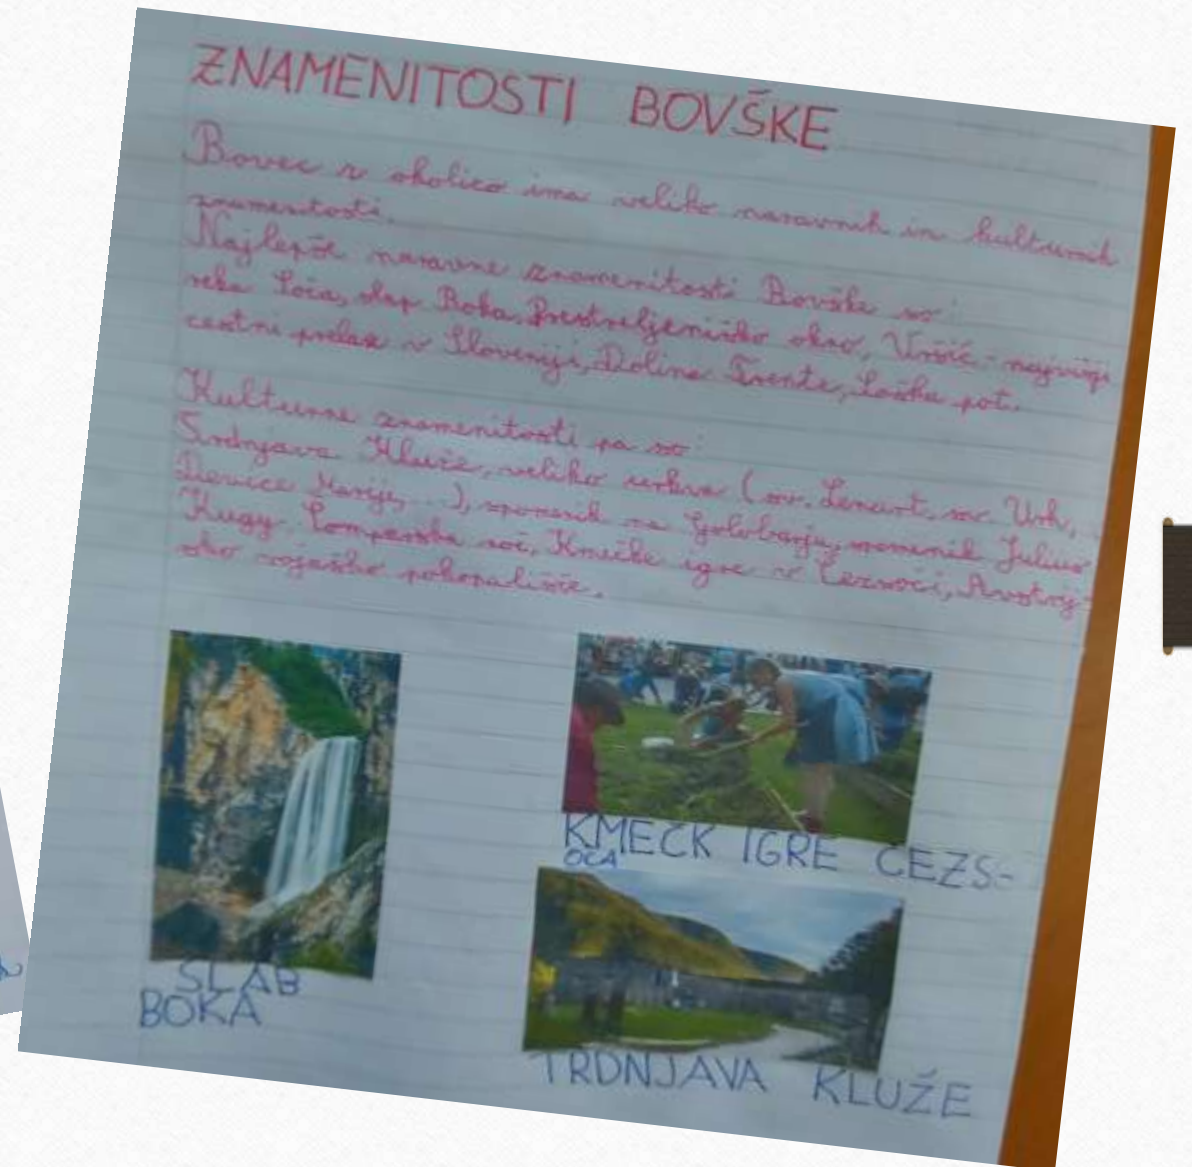 ZNAMENITOSTI BOVŠKE
Bovec z okolico ima veliko naravnih in kulturnih
znamenitosti.
Najlepše naravne znamenitosti Bovške so:
reka Soča, slap Boka, Prestreljeniško okno, Vršič - najvišji
cestni prelaz v Sloveniji, Dolina Trente, Soška pot.
Kulturne znamenitosti pa so:
Trdnjava Kluže, veliko cerkva (sv. Lenart, sv. Urh,
Device Marije, ...), spomenik na Golobarju, spomenik Julius
Kugy, Lomparska noč, Kmečke igre v Čezsoči, Avstrij-
sko vojaško pokopališče.
KMEČK IGRE ČEZS-
OČA
SLAB
BOKA
TRDNJAVA KLUŽE